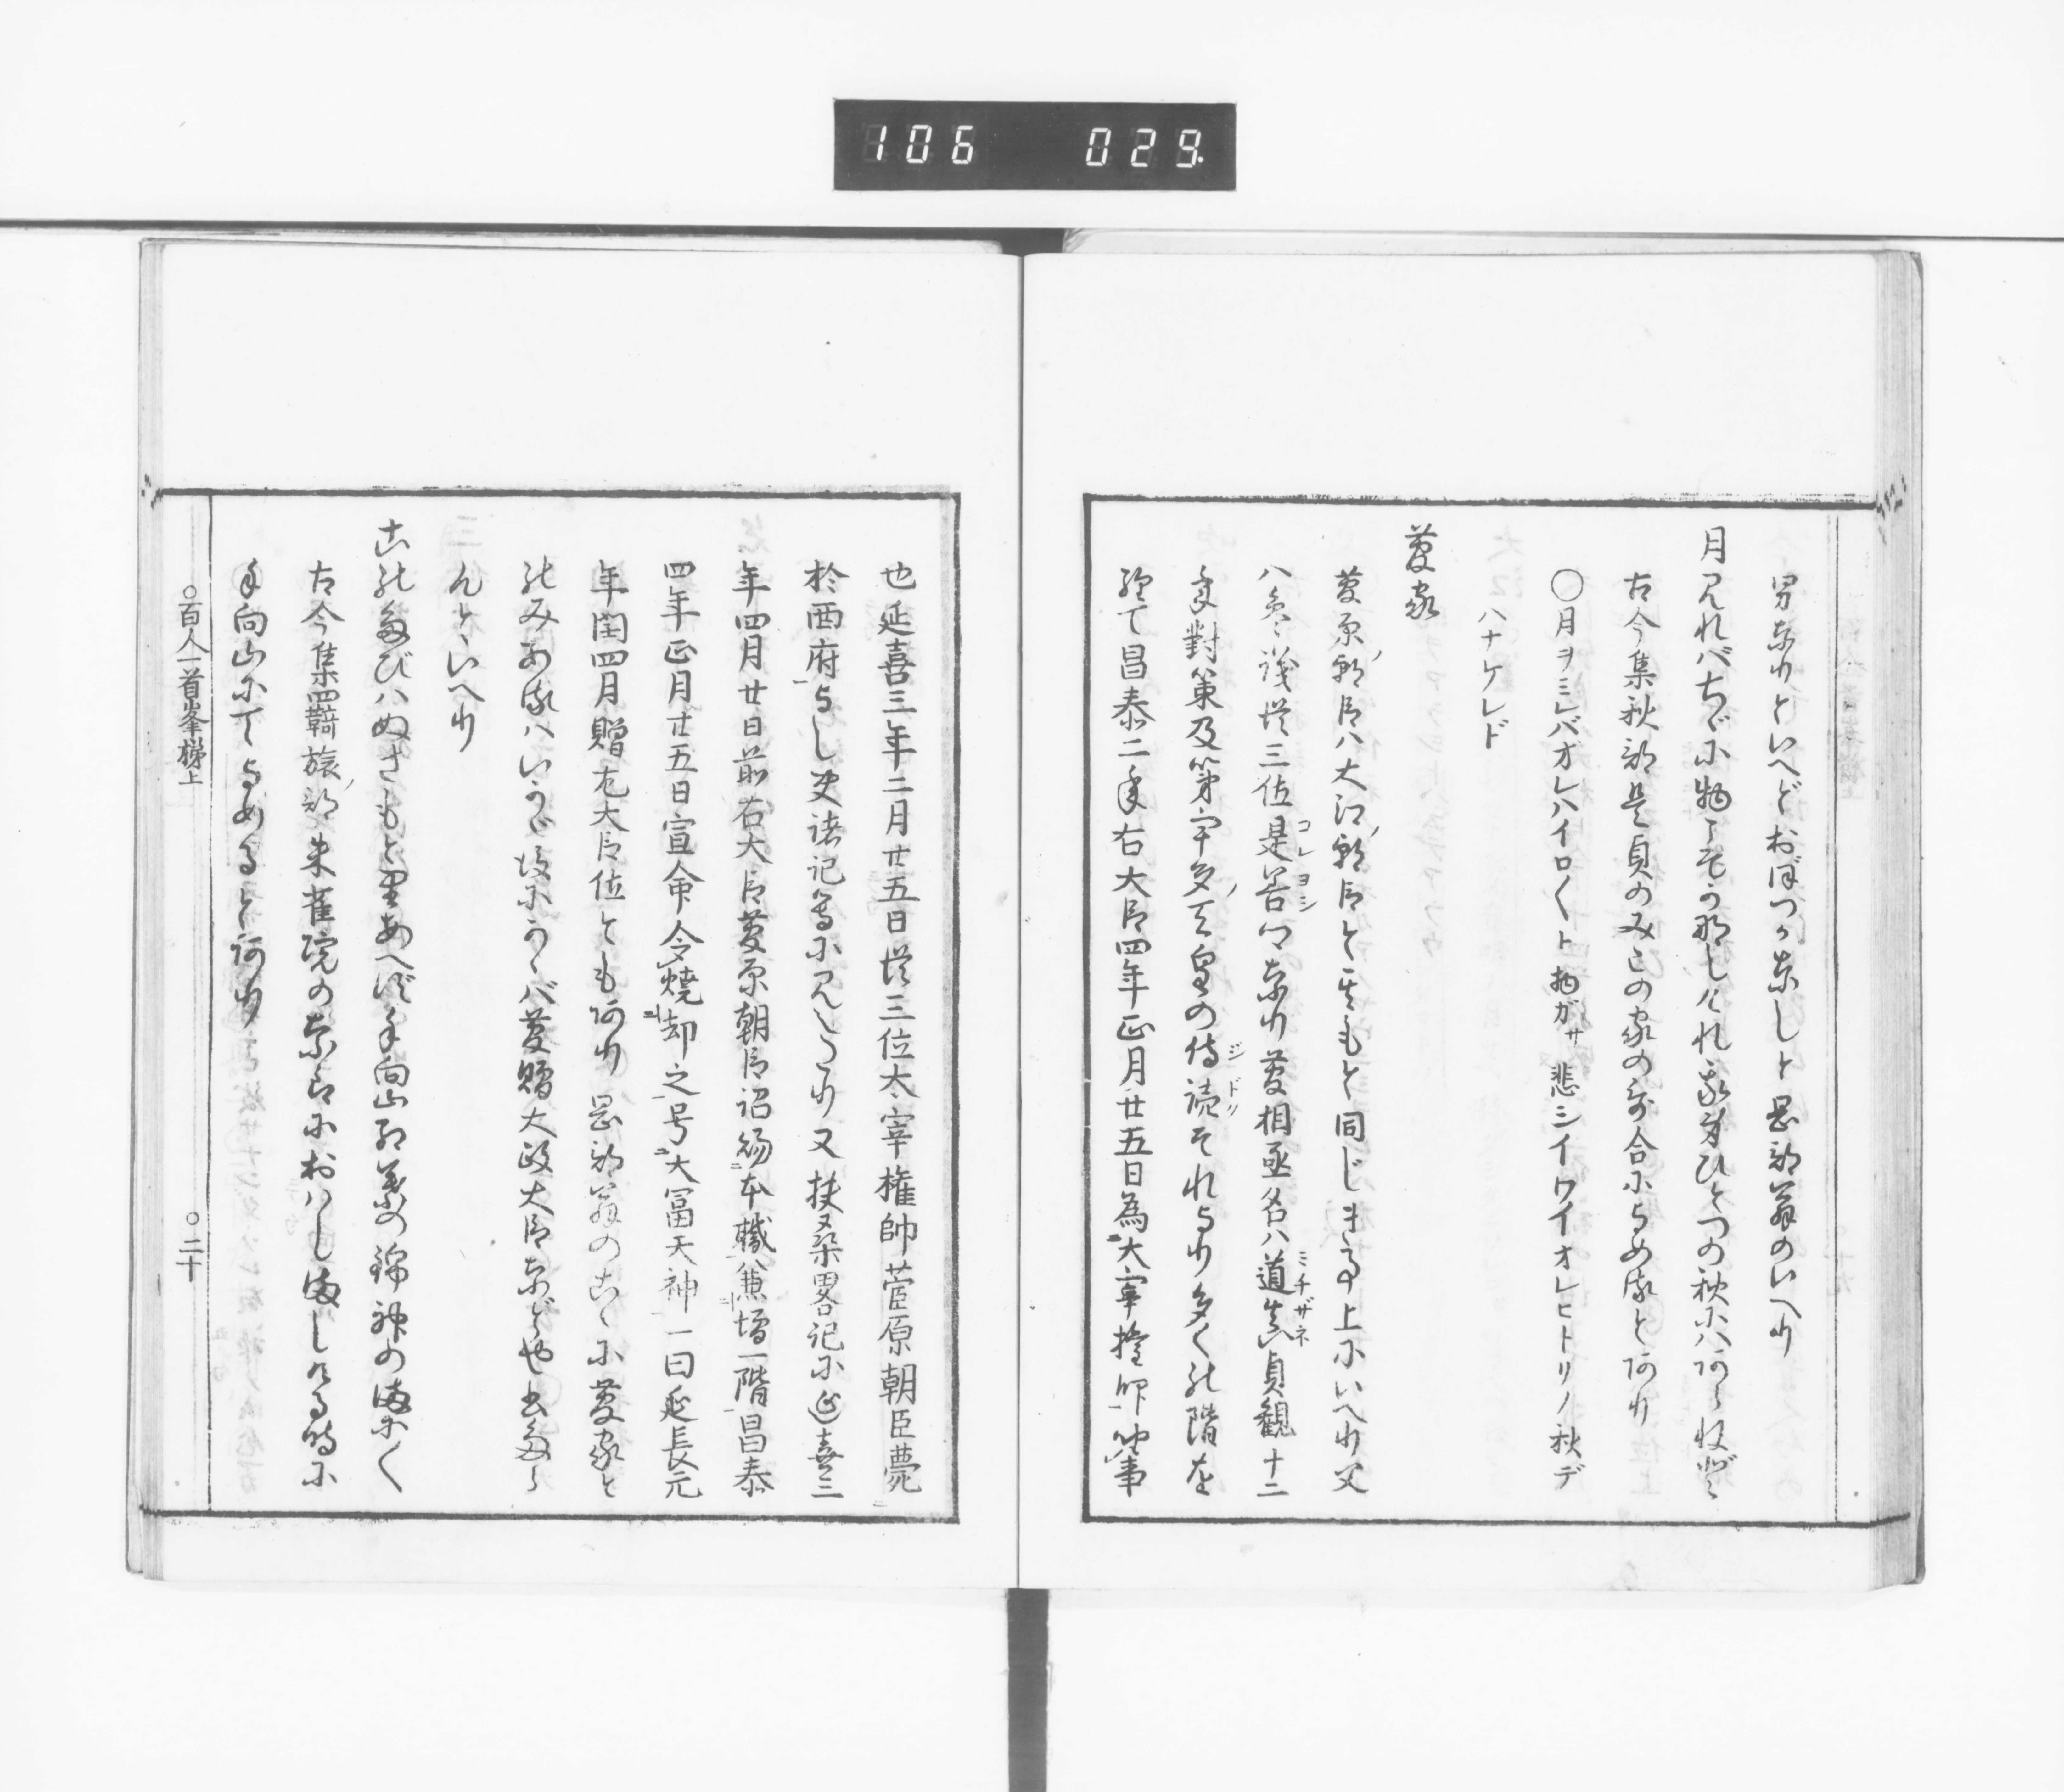 106 029
男なりといへどおぼつかなしと岡部翁のいへり
月見ればちゞに物こそかなしけれ我身ひとつの秋にはあらねど
古今集秋部是貞のみこの家の歌合によめるとあり
○月ヲミレバオレハイロ〱ト物ガサ悲シイワイオレヒトリノ秋デ
ハナケレド
菅家
菅原ノ朝臣ハ大江ノ朝臣と其もと同じき事上にいへり父
ハ参議従三位是善卿なり菅相丞名ハ道真貞観十二
年對策及第宇多ノ天皇の侍読それより多くの階を
経て昌泰二年右大臣四年正月廿五日為大宰権帥等
也延喜三年二月廿五日従三位太宰権帥菅原朝臣薨
於西府よし史諸記等に見えたり又扶桑畧記に延喜三
年四月廿日前右大臣菅原朝臣詔復本職兼増一階昌泰
四年正月廿五日宣命令焼却之号大冨天神一曰延長元
年閏四月贈左大臣位ともあり岡部翁のこゝに菅家と
のみあるハいかゞ故にかゝバ菅贈大政大臣などや出たら
んとゝいへり
此たびハぬさもとりあへず手向山紅葉の錦神のまに〱
古今集四羇旅ノ部朱雀院のならにおハしましける時に
手向山にてよめるとあり
○百人一首峯梯上
○二十